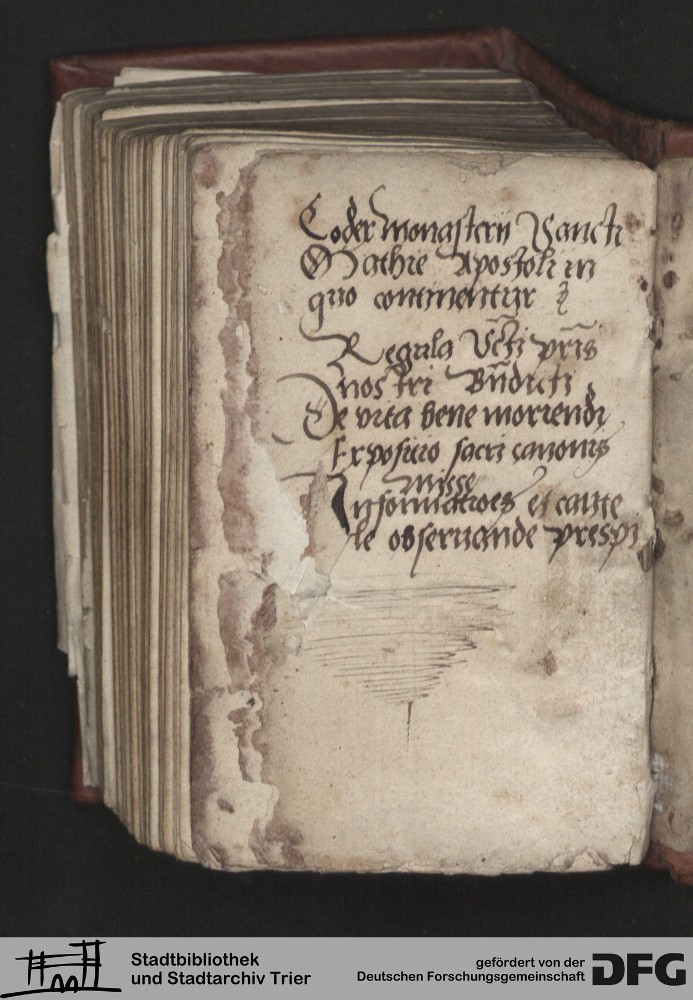 Codex monasterij Sancti
Mathie Apostoli in
quo continentur
Regula Scti pris
nostri Bndicti
De vita bene moriendi
Expositio sacri canonis
misse
Informatioes et caute
le obseruande
Stadtbibliothek
und Stadtarchiv Trier
gefördert von der
Deutschen Forschungsgemeinschaft
DFG